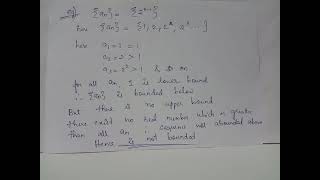 eg) {an} = {2ⁿ⁻¹}
here {an} = {1, 2, 2², 2³ ...}
here a₁ = 1 = 1
a₂ = 2 > 1
a₃ = 2² > 1 & so on
for all an, 1 is lower bound
∴ {an} is bounded below
But there is no upper bound
there exist no real number which is greater
than all an ∴ sequence not abounded above
Hence is not bounded